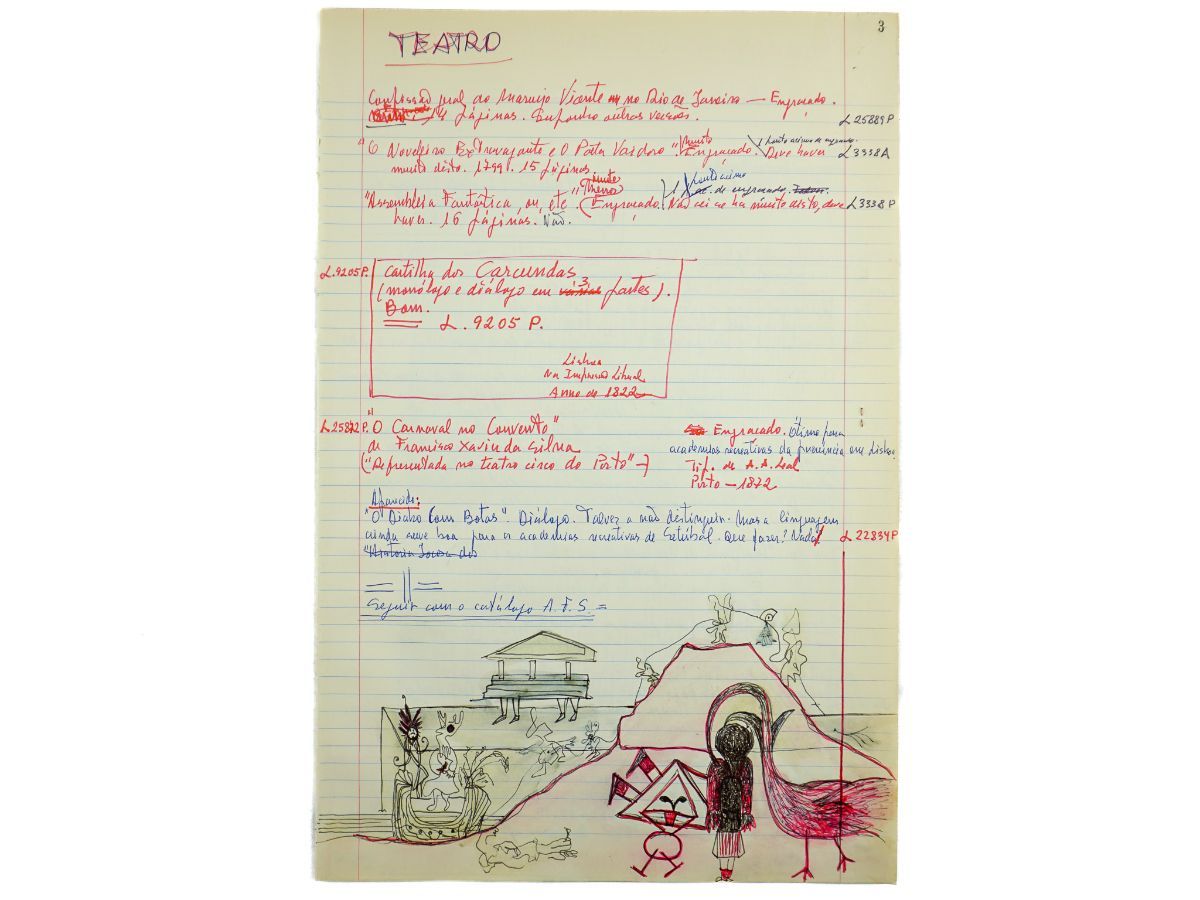 3
TEATRO
Confissão geral do Marujo Vicente no Rio de Janeiro — Engraçado.
14 páginas. Suponho outras versões.
L 25889 P
"O Noveleiro Extravagante e O Peta Vaidoso" Muito Engraçado. Deve haver L 3338 A
muito disto. 1799. 15 páginas
"Assembleia Fantástica, ou, etc." Muito Menos Engraçado. Não sei se há muito disto, deve L 3338 P
haver. 16 páginas. Não.
L. 9205 P.
Cartilha dos Carcundas
(monólogo e diálogo em várias 3 partes).
Bom.
L. 9205 P.
Lisboa
Na Impressão Liberal
Anno de 1822
L 25872 P. "O Carnaval no Convento"
de Francisco Xavier da Silva
("Representada no teatro circo do Porto")
Engraçado. Ótimo para
academias recreativas da província em Lisboa
Tip. de A. A. Leal
Porto — 1872
Aparecido:
"O Diabo Com Botas". Diálogo. Talvez a não distinguir. Mas a linguagem
ainda serve boa para as academias recreativas de Setúbal. Que fazer? Nada! L 22834 P
"História Jocosa dos
Seguir com o catálogo A. F. S. =